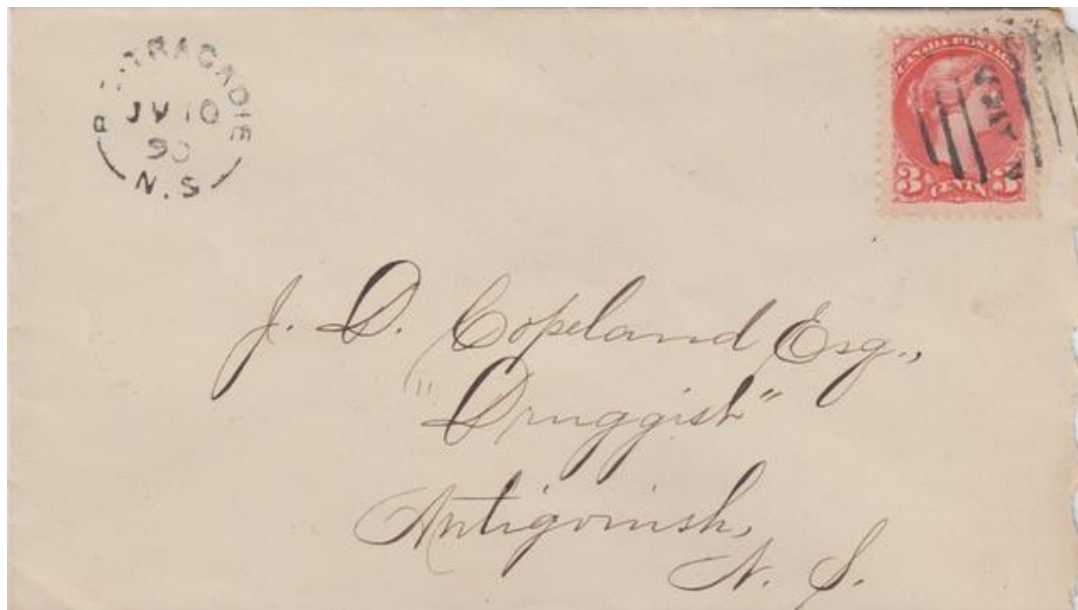 TRACADIE
JY 10
90
N.S
CANADA POSTAGE
3 CENTS 3
J. D. Copeland Esq.,
"Druggist"
Antigonish,
N. S.